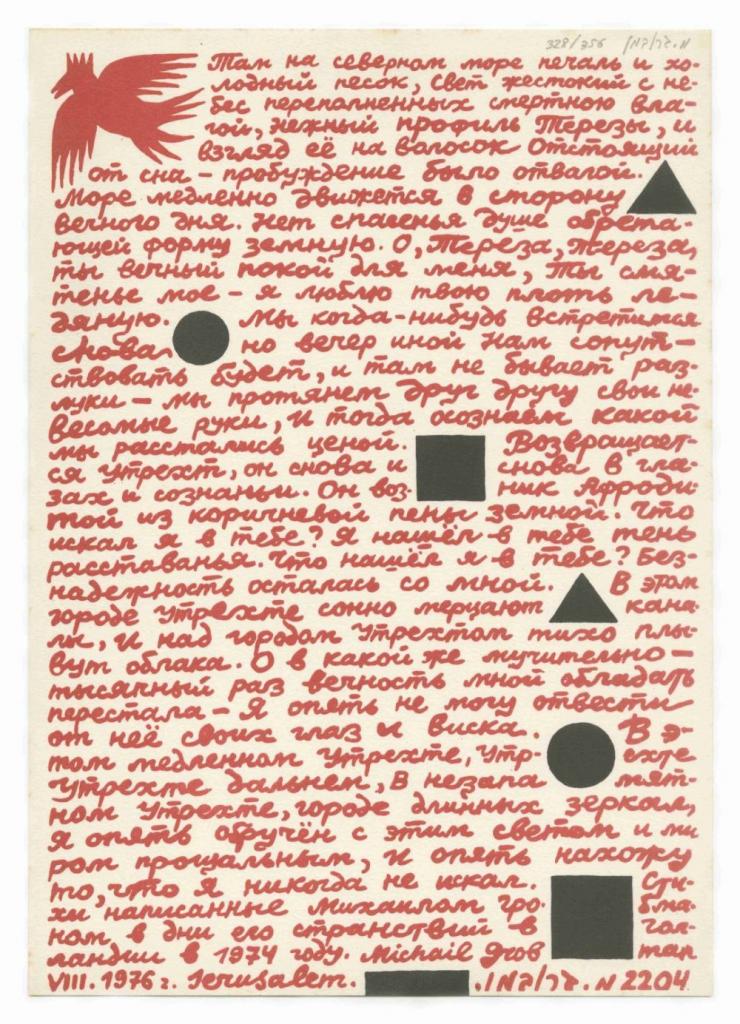 328/356 מ. גרובמן
Там на северном море печаль и хо-
лодный песок, свет жестокий с не-
бес переполненных смертною вла-
гой, нежный профиль Терезы, и
взгляд её на волосок Отстоящий
от сна – пробуждение было отвагой.
Море медленно движется в сторону
вечного дня. Нет спасенья душе обрета-
ющей форму земную. О, Тереза, Тереза,
ты вечный покой для меня, Ты смя-
тенье мое – я люблю твою плоть ле-
дяную. Мы когда-нибудь встретимся
снова, но вечер иной Нам сопут-
ствовать будет, и там не бывает раз-
луки – мы протянем друг другу свои не-
весомые руки, И тогда осознаем какой
мы расстались ценой. Возвращает-
ся Утрехт, он снова и снова в гла-
зах и сознаньи. Он воз- ник Афроди-
той из коричневой пены земной. Что
искал я в тебе? Я нашёл в тебе тень
расставанья. Что нашёл я в тебе? Без-
надежность осталась со мной. В этом
городе Утрехте сонно мерцают кана-
лы, И над городом Утрехтом тихо плы-
вут облака. О в какой же мучительно –
тысячный раз вечность мной обладать
перестала – Я опять не могу отвести
от неё своих глаз и виска. В э-
том медленном Утрехте, Утр- ехте
Утрехте дальнем, В незапа мят-
ном Утрехте, городе длинных зеркал,
Я опять обручён с этим светом и ми
ром прощальным, И опять нахожу
то, что Я никогда не искал. Сти-
хи написанные Михаилом Гро- бма-
ном в дни его странствий в гол-
ландии в 1974 году. Michail Grob man
VIII. 1976 г. Jerusalem. מ. גרובמן. 2204